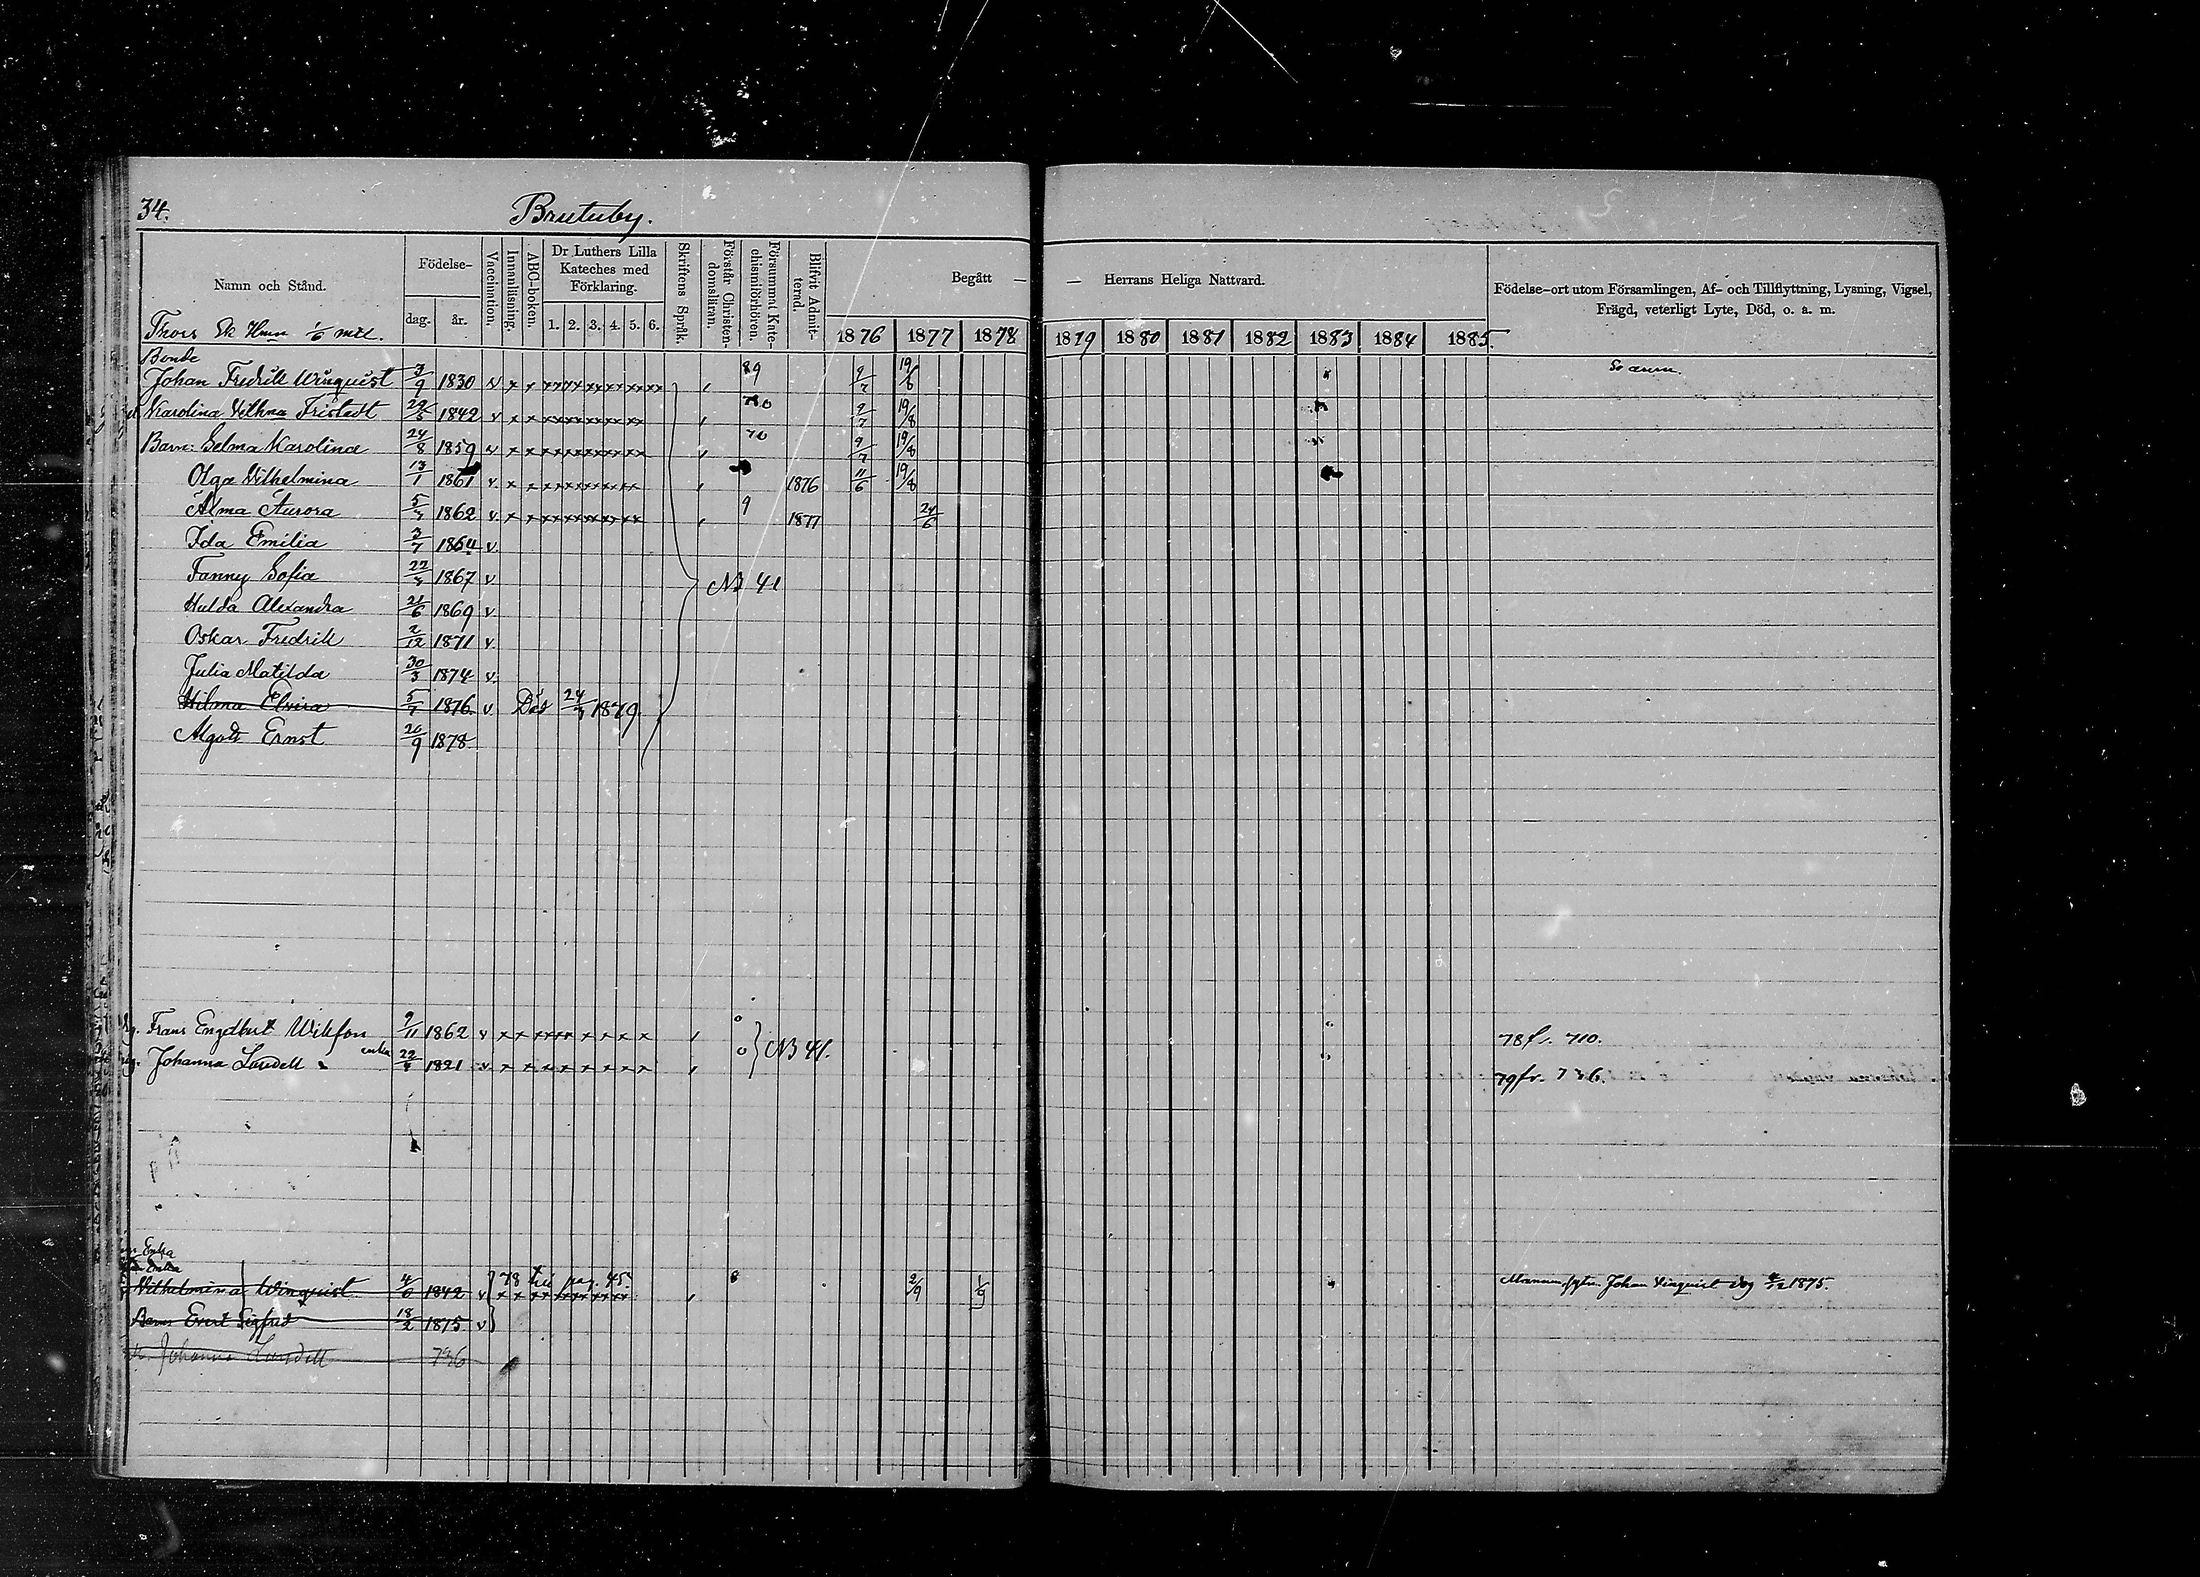 34.
Brutuby.
Namn och Stånd.
Födelse-
dag.
år.
Vaccination.
Innanläsning.
ABC-boken.
Dr Luthers Lilla
Kateches med
Förklaring.
1. 2. 3. 4. 5. 6.
Skriftens Språk.
Förstår Christen-
domsläran.
Försummat Kate-
chismiförhören.
Blifvit Admit-
terad.
Begått —
— Herrans Heliga Nattvard.
1876 1877 1878
1879 1880 1881 1882 1883 1884 1885
Födelse-ort utom Församlingen, Af- och Tillflyttning, Lysning, Vigsel,
Frägd, veterligt Lyte, Död, o. a. m.
Thors Sk Hmn 1/6 mtl.
Bonde
Johan Fredrik Winquist 3/9 1830 v 89 9/7 19/8
Karolina Vilhma Fristedt 1842 v 9/7 19/8
Barn: Selma Karolina 24/8 1859 v 70 9/7 19/8
Olga Vilhelmina 13/1 1861 v. 1876 11/6 19/8
Alma Aurora 1862 v. 9 1877 24/6
Ida Emilia 3/7 1864 v.
Fanny Sofia 1867 v
NB 41
Hulda Alexandra 21/6 1869 v.
Oskar Fredrik 2/12 1871 v.
Julia Matilda 30/3 1874 v.
Hilma Elvira 5/7 1876 v. Död 1879.
Algoth Ernst 20/9 1878
Frans Engelbert Wikfon 9/11 1862 v 0 78 f. 710.
enka
Johanna Lundell 1821 v 0 NB 41. 79 fr. 736.
Enka
Vilhelmina Winquist 4/6 1842 v 78 till pag. 45. 2/9 1/9 Mannen Johan Vinquist dog 1875.
Barn Evert Sigfrid 18/2 1875 v
Johanna Lundell 736